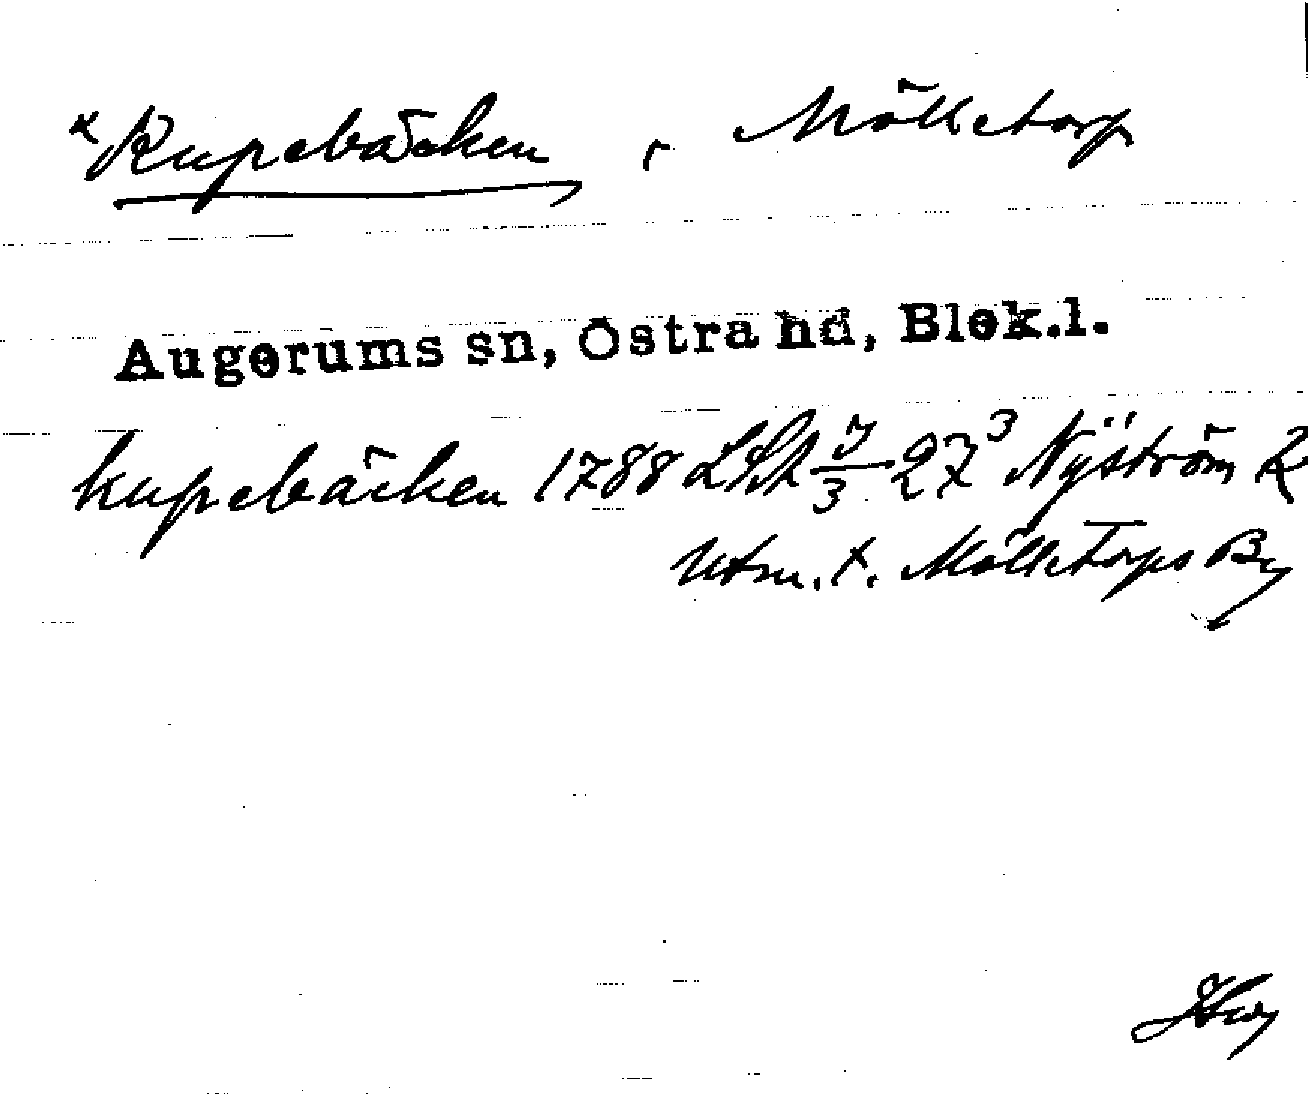 * Kupebäcken, Mölletorp
Augerums sn, Östra hd, Blek.l.
kupebäcken 1788 LSA 27³ Nÿström K
Utm. t. Mölletorps By